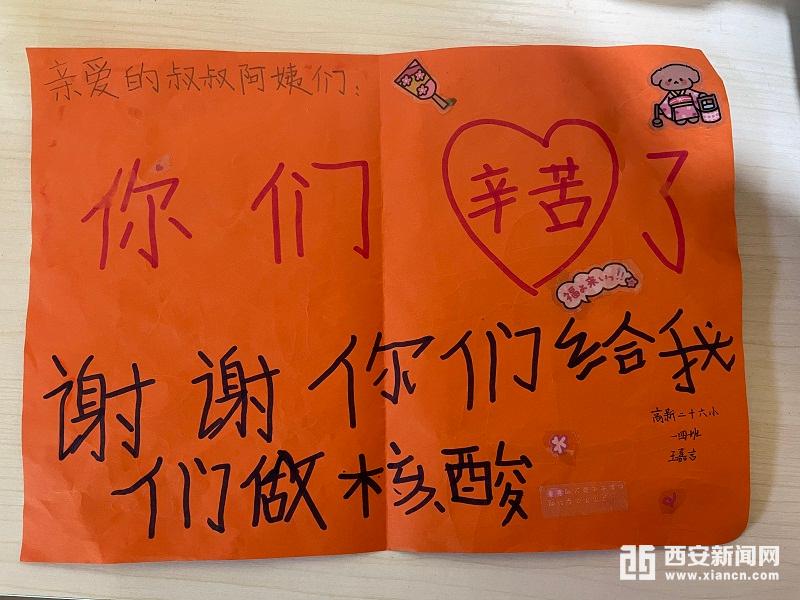 亲爱的叔叔阿姨们：
你们辛苦了
福よ来いっ!!
谢谢你们给我
们做核酸
高新二十六小
一四班
王嘉吉
西安新闻网
www.xiancn.com